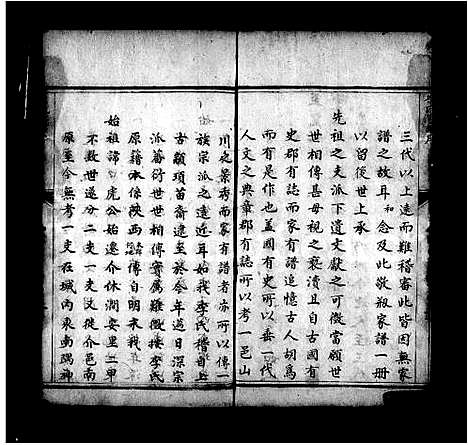 三代以上遠而難稽審此皆因無家
譜之故耳和念及此敬瓶家譜一冊
以留後世上承
先祖之支派下遺文獻之可徵當願世
世相傳甚毋視之褻瀆且自古國有
史郡有誌而家有譜追憶古人胡為
而有是作也盖國有史所以垂一代
人文之典章郡有誌所以考一邑山
川之景秀而家有譜者亦所以傳一
族宗派之遠近耳如我李氏稽自上
古顓頊苗裔逮至於今年過日深宗
派蕃衍世世相傳實属難徵接李氏
原籍本係陝西韓譯自明末我
始祖諱 虎公始遷介休潤安里二甲
不數世遂分二支一支又徙介邑南
原至今無考一支在城內東南隅神